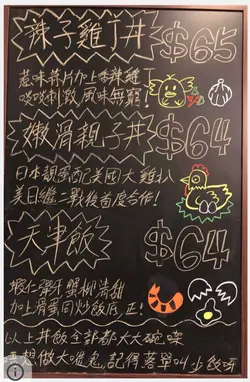 辣子雞丁丼 $65
惹味丼片加上香辣雞丁
啖啖刺激 風味無窮!
嫩滑親子丼 $64
日本調味配美國大雞扒
美日繼二戰後首度合作!
天津飯 $64
蝦仁 蟹柳清甜
加上滑蛋同炒飯底 正!
以上丼飯全部都大大碗㗎
唔想做大嘥鬼,記得落單叫少飯呀